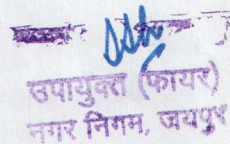 उपायुक्त (फायर)
नगर निगम, जयपुर